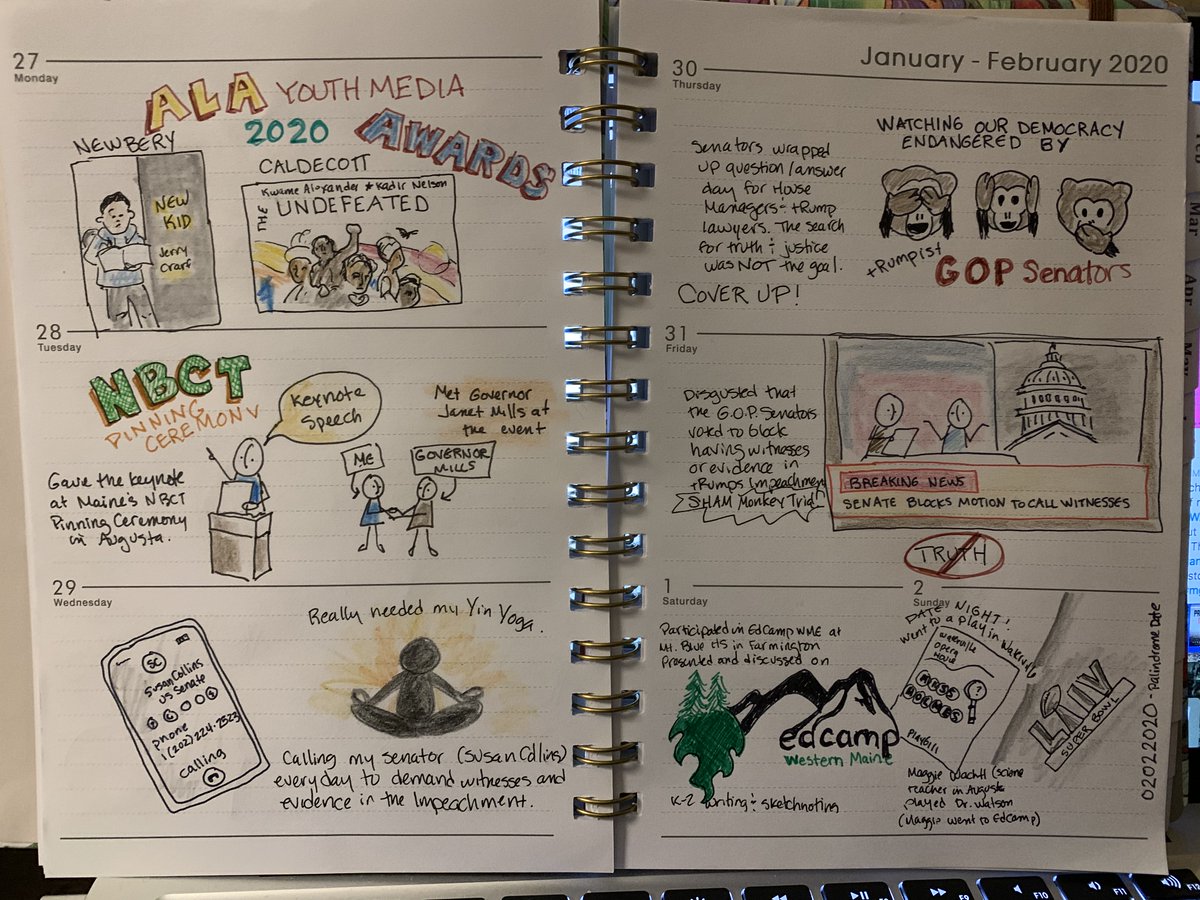 27
Monday
ALA YOUTH MEDIA
2020 AWARDS
NEWBERY
NEW
KID
Jerry
Craft
CALDECOTT
Kwame Alexander * Kadir Nelson
THE
UNDEFEATED
28
Tuesday
NBCT
PINNING
CEREMONY
Keynote
Speech
Met Governor
Janet Mills at
the event
ME
GOVERNOR
MILLS
Gave the keynote
at Maine's NBCT
Pinning Ceremony
in Augusta.
29
Wednesday
Really needed my Yin Yoga.
SC
Susan Collins
US Senate
phone
1(202)224-2523
calling
Calling my senator (Susan Collins)
everyday to demand witnesses and
evidence in the Impeachment.
January - February 2020
30
Thursday
Senators wrapped
up question/answer
day for House
Managers + tRump
lawyers. The search
for truth + justice
was NOT the goal.
COVER UP!
WATCHING OUR DEMOCRACY
ENDANGERED BY
tRumpist
GOP Senators
31
Friday
Disgusted that
the G.O.P. Senators
voted to block
having witnesses
or evidence in
tRumps Impeachment
SHAM Monkey Trial
BREAKING NEWS
SENATE BLOCKS MOTION TO CALL WITNESSES
TRUTH
1
Saturday
Participated in EdCamp WME at
Mt. Blue HS in Farmington
Presented and discussed on
edcamp
Western Maine
K-2 writing + sketchnoting
2
Sunday
DATE NIGHT!
Went to a play in Waterville
Waterville
Opera
House
MISS
HOLMES
?
Playbill
LIV
SUPER BOWL
Maggie
(Science
teacher in Augusta
played Dr. Watson
(Maggie went to EdCamp)
02022020 - Palindrome Date